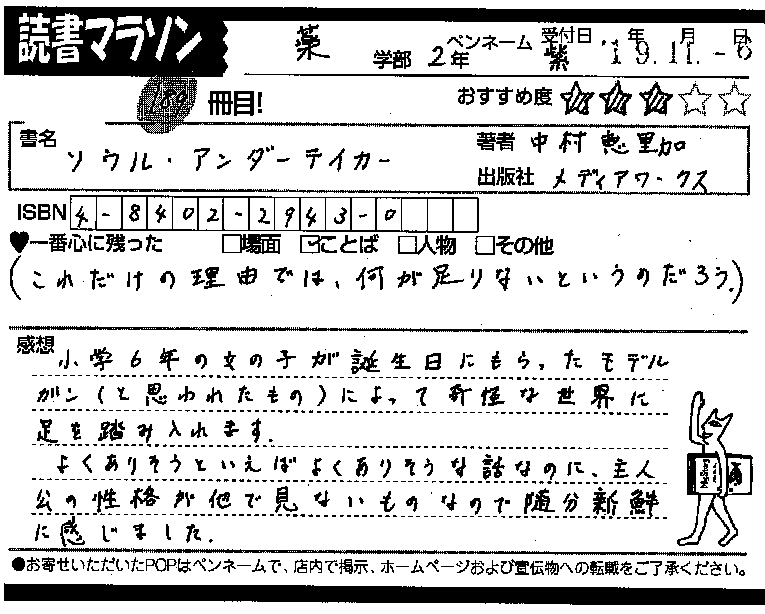 読書マラソン
薬 学部 2年 ペンネーム 紫 受付日 '19.11.-6 年 月 日
180 冊目!
おすすめ度 ★★★☆☆
書名 ソウル・アンダーテイカー
著者 中村恵里加
出版社 メディアワークス
ISBN 4-8402-2943-0
♥一番心に残った □場面 ☑ことば □人物 □その他
(これだけの理由では、何が足りないというのだろう。)
感想
小学6年の女の子が誕生日にもらったモデル
ガン(と思われたもの)によって奇怪な世界に
足を踏み入れます。
よくありそうといえばよくありそうな話なのに、主人
公の性格が他で見ないものなので随分新鮮
に感じました。
●お寄せいただいたPOPはペンネームで、店内で掲示、ホームページおよび宣伝物への転載をご了承ください。